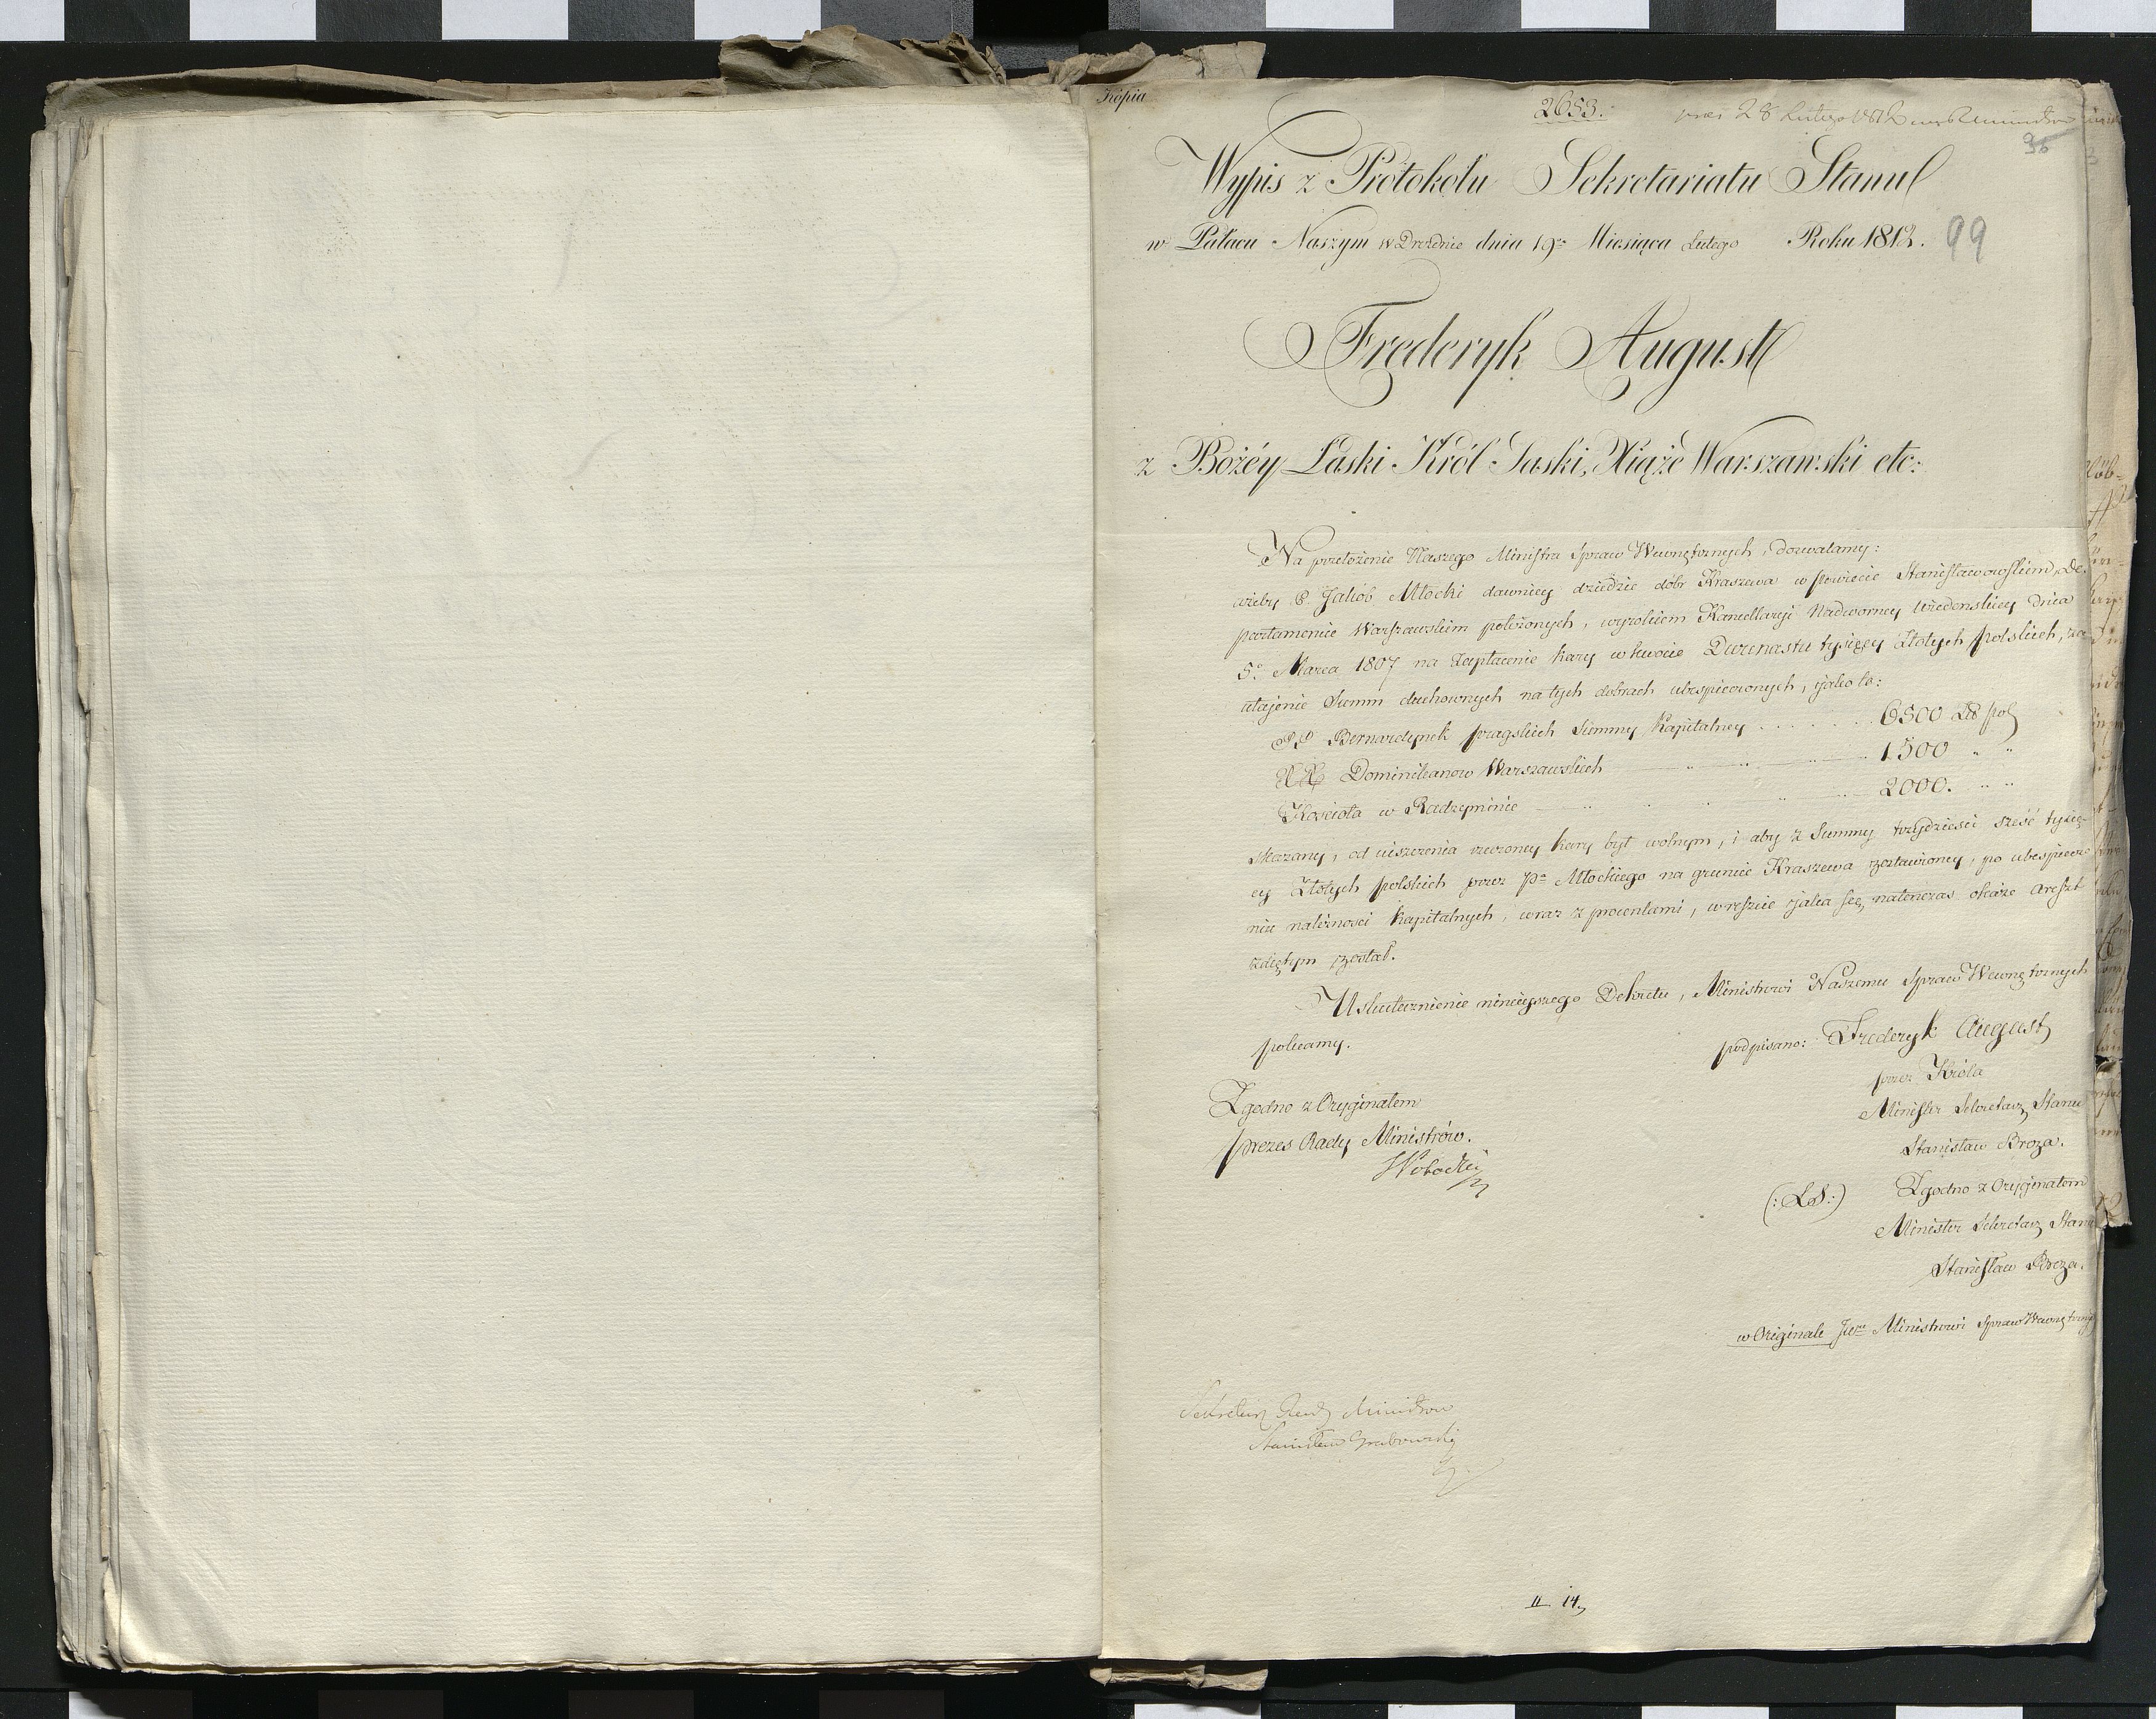 Kopia
2653.
28 Lutego 1812
36
Wypis z Protokołu Sekretariatu Stanu
w Pałacu Naszym w Dreźnie dnia 19º Miesiąca Lutego Roku 1812.
99
Frederyk August
z Bożéy Łaski Król Saski, Xiążę Warszawski etc:
Na przełożenie Naszego Ministra Spraw Wewnętrznych, dozwalamy:
ażeby P. Jakób Młocki dawniey dziedzic dóbr Kraszewa w powiecie Stanisławowskim, De-
partamencie Warszawskim położonych, wyrokiem Kancellaryi Nadworney Wiedenskiey dnia
5º Marca 1807 na zapłacenie kary w kwocie Dwunastu tysięcy Złotych polskich, za
utajenie Summ duchownych na tych dobrach ubespieczonych, jako to:
PP Bernardynek pragskich Summy Kapitalney . . . . . . . 6500 Zł pol
XX Dominikanow Warszawskich 1500 " "
Kościoła w Radzyminie 2000. " "
skazany, od uiszczenia rzeczoney kary był wolnym, i aby z Summy trzydzieści sześć tysię-
cy Złotych polskich przez Pª Młockiego na gruncie Kraszewa zostawioney, po ubespiecze
niu należnosci kapitalnych, wraz z procentami, w reszcie jaka się natenczas okaże areszt
zdiętym został.
Uskutecznienie ninieyszego Dekretu, Ministrowi Naszemu Spraw Wewnętrznych
polecamy.
podpisano: Frederyk August
przez Króla
Minister Sekretarz Stanu
Stanisław Breza.
Zgodno z Oryginałem
prezes Rady Ministrów.
(: LS :)
Zgodno z Oryginałem
Minister Sekretarz Stanu
Stanisław Breza.
w Originale Ministrowi Spraw Wewnętrznych
Sekretarz Rady Ministrow
Stanisław Grabowski
II 14